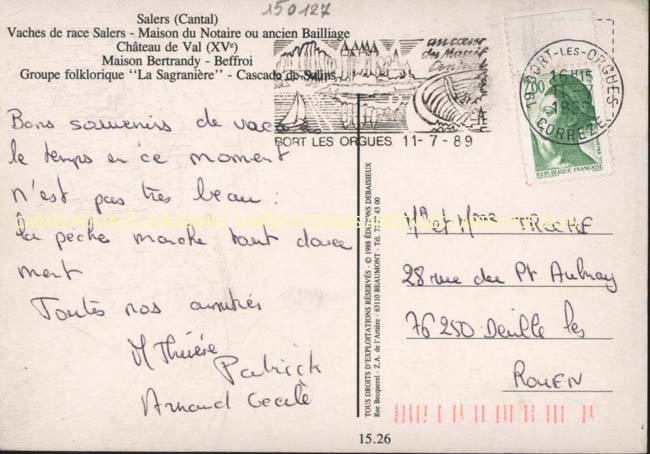 150127
Salers (Cantal)
Vaches de race Salers - Maison du Notaire ou ancien Bailliage
Château de Val (XVe)
Maison Bertrandy - Beffroi
Groupe folklorique "La Sagranière" - Cascade de Salins
au cœur
du Massif
Central
BORT LES ORGUES 11-7-89
19 BORT-LES-ORGUES
16H15
CORREZE
REPUBLIQUE FRANÇAISE
Bons souvenirs de vac
le temps en ce moment
n'est pas très beau.
la pêche marche tout douce
ment
Toutes nos amitiés
M Thérèse
Patrick
Arnaud Cecile
TOUS DROITS D'EXPLOITATIONS RÉSERVÉS - © 1988 ÉDITIONS DEBAISIEUX
Rue Becquerel - Z.A. de l'Artière - 63110 BEAUMONT - Tél.
Mr et Mme
28 rue du Pt Aulnay
76250 Deville les
ROUEN
15.26